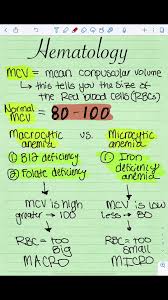 Hematology
MCV = mean corpuscular volume
↳ this tells you the size of
the Red blood cells (RBCs)
Normal MCV = 80-100
Macrocytic anemia vs. Microcytic anemia
① B12 deficiency
② Folate deficiency
① Iron deficiency anemia
MCV is high
greater → 100
MCV is low
less → 80
RBC = too big
MACRO
RBC = too small
MICRO